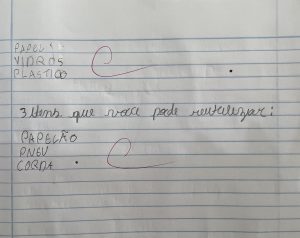 PAPEL
VIDROS
PLASTICO
C
3 itens que voce pode reutilizar:
PAPELÃO
PNEU
CORDA
C